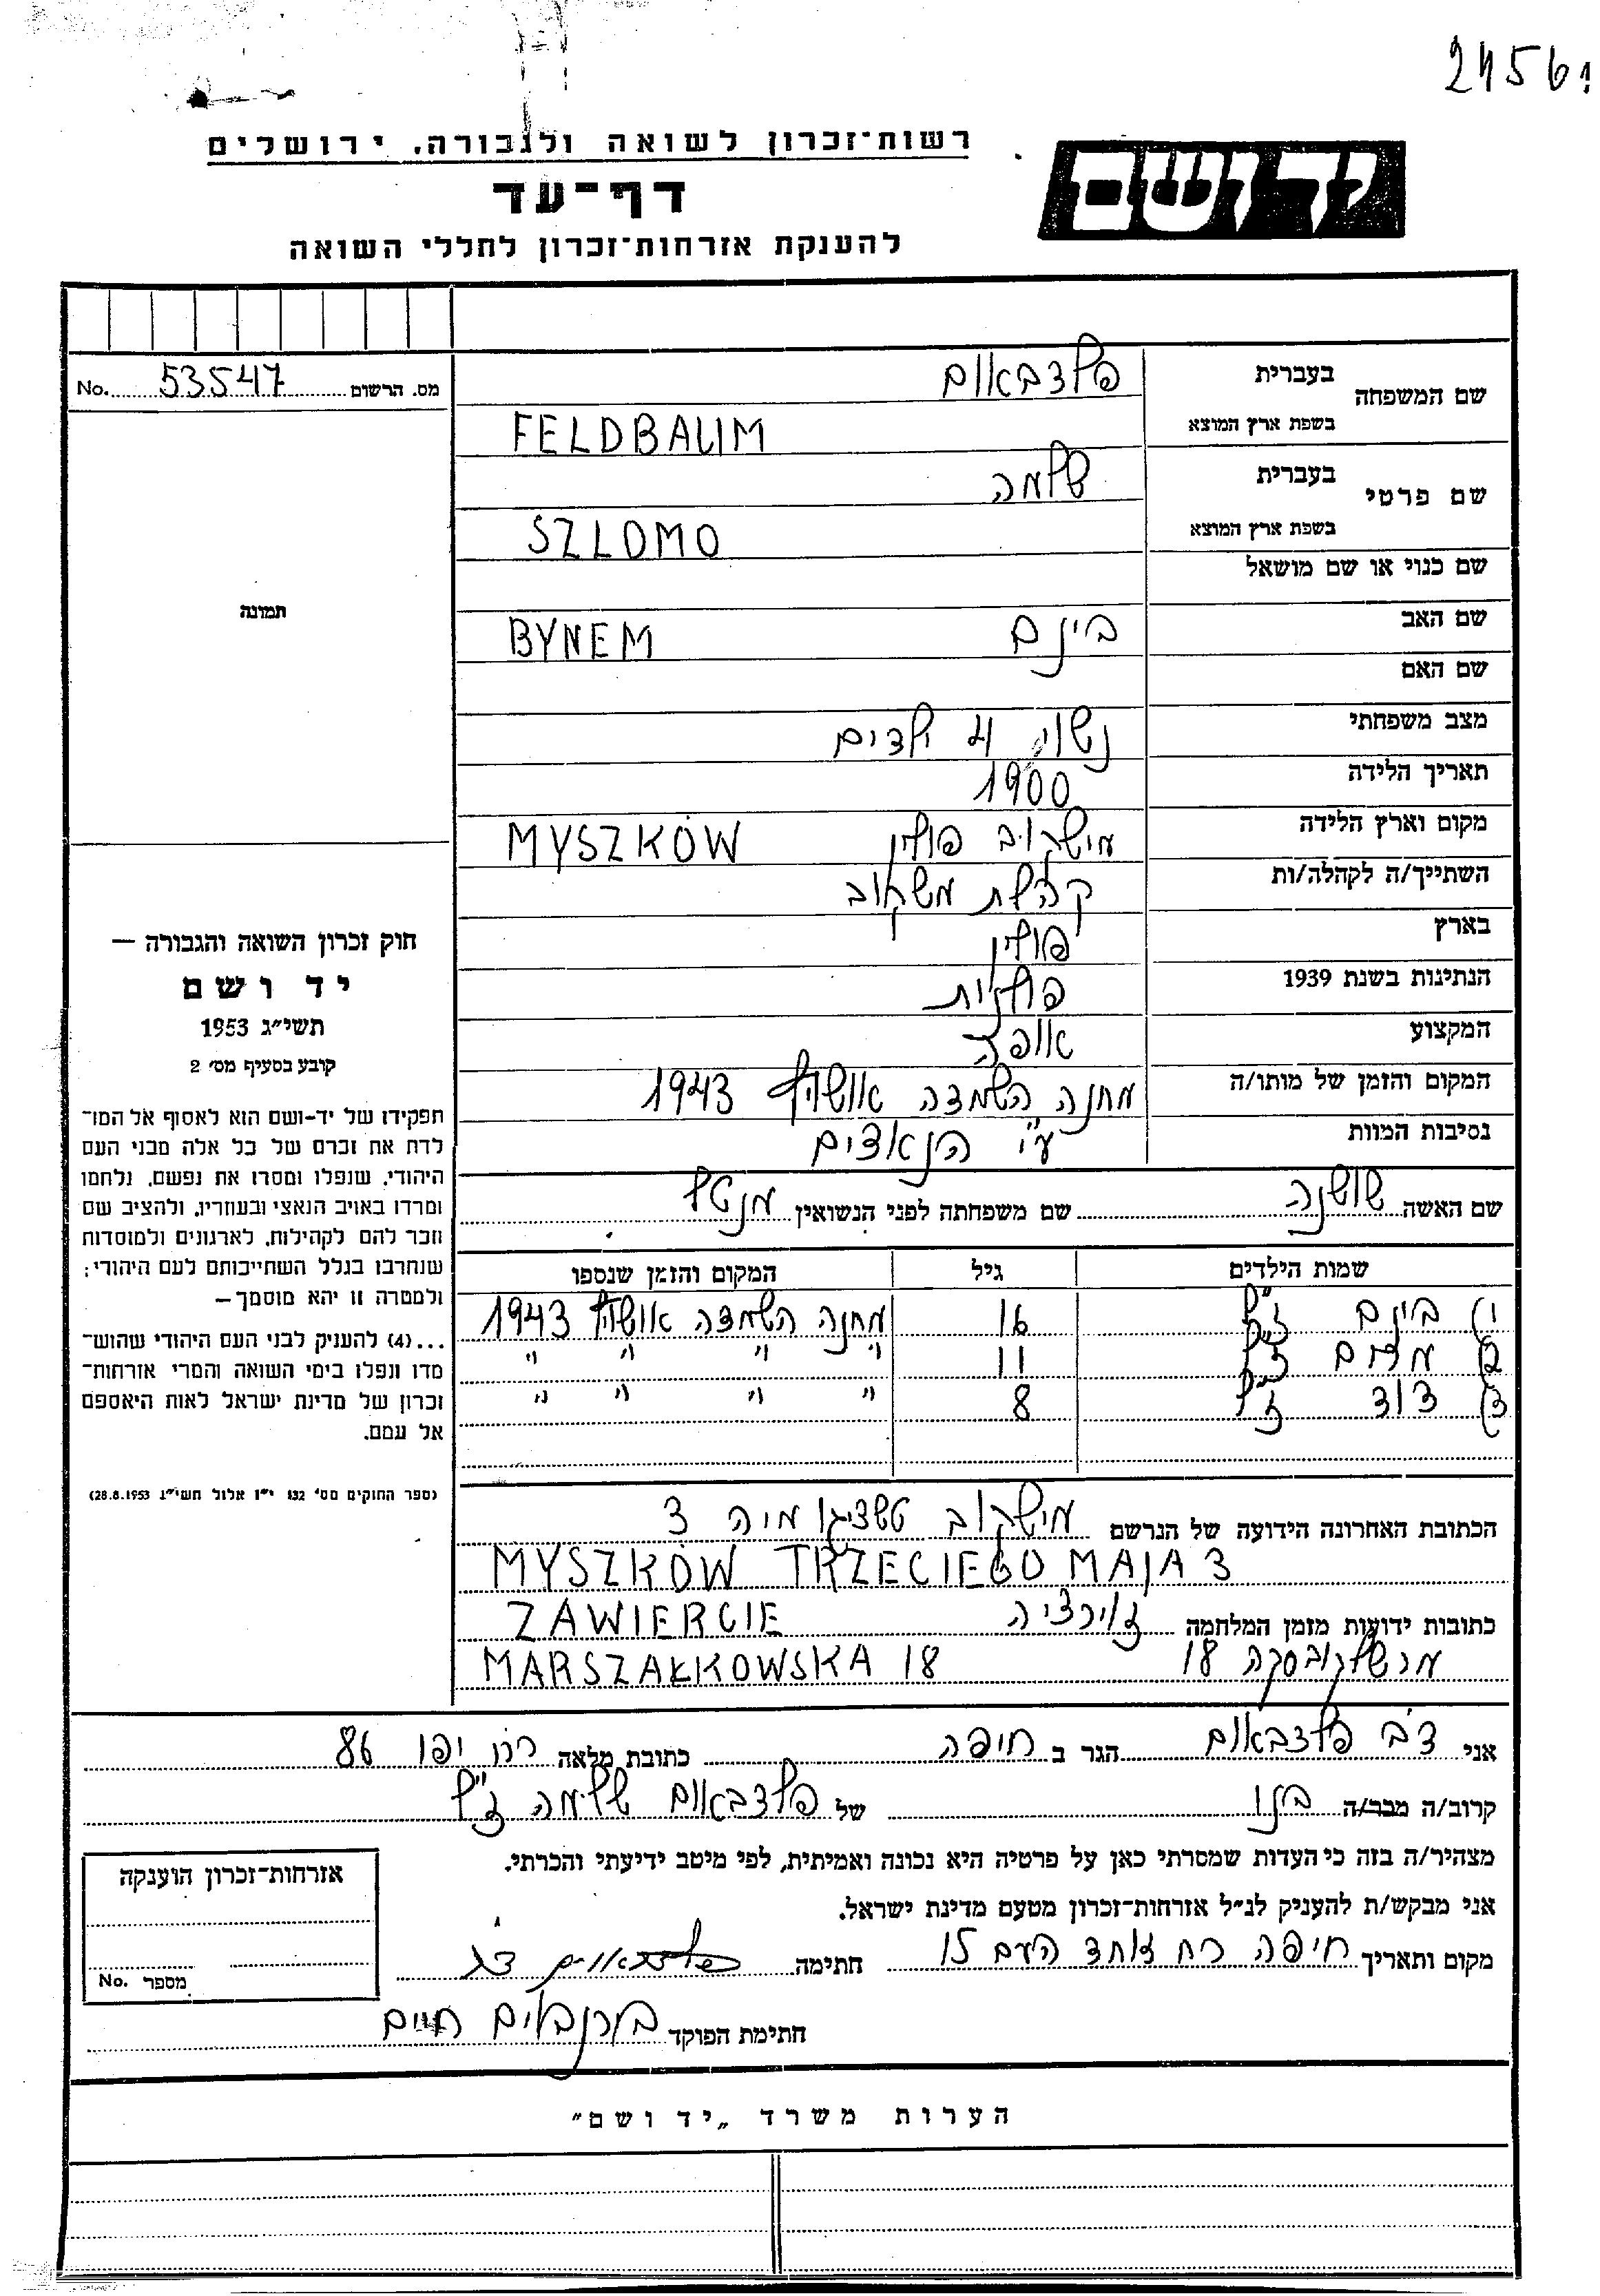 2456
רשות־זכרון לשואה ולגבורה, ירושלים
יד ושם
דף־עד
להענקת אזרחות־זכרון לחללי השואה
מס. הרשום 53547 No.
שם המשפחה
בעברית פלדבאום
בשפת ארץ המוצא FELDBAUM
שם פרטי
בעברית שלמה
בשפת ארץ המוצא SZLOMO
שם כנוי או שם מושאל
תמונה
שם האב בינם BYNEM
שם האם
מצב משפחתי נשוי 4 ילדים
תאריך הלידה 1900
מקום וארץ הלידה מישקוב פולין MYSZKÓW
השתייך/ה לקהלה/ות קהלת משקוב
בארץ פולין
הנתינות בשנת 1939 פולנית
המקצוע אופה
המקום והזמן של מותו/ה מחנה השמדה אושויץ 1943
נסיבות המוות ע"י הנאצים
שם האשה שושנה שם משפחתה לפני הנשואין מנטל
שמות הילדים גיל המקום והזמן שנספו
1) בינם ז"ל 16 מחנה השמדה אושויץ 1943
2) ז"ל 11 " " " "
3) דוד ז"ל 8 " " " "
חוק זכרון השואה והגבורה —
יד ושם
תשי״ג 1953
קובע בסעיף מס׳ 2
תפקידו של יד־ושם הוא לאסוף אל המו־
לדת את זכרם של כל אלה מבני העם
היהודי, שנפלו ומסרו את נפשם, נלחמו
ומרדו באויב הנאצי ובעוזריו, ולהציב שם
וזכר להם לקהילות, לארגונים ולמוסדות
שנחרבו בגלל השתייכותם לעם היהודי;
ולמטרה זו יהא מוסמך —
...(4) להעניק לבני העם היהודי שהוש־
מדו ונפלו בימי השואה והמרי אזרחות־
זכרון של מדינת ישראל לאות היאספם
אל עמם.
(ספר החוקים מס׳ 132 י״ז אלול תשי״ג 28.8.1953)
הכתובת האחרונה הידועה של הנרשם מישקוב טשציגו מיה 3
MYSZKÓW TRZECIEGO MAJA 3
כתובות ידועות מזמן המלחמה זוירציה ZAWIERCIE
מרשלקובסקה 18 MARSZAŁKOWSKA 18
אני דב פלדבאום הגר ב חיפה כתובת מלאה רח יפו 86
קרוב/ה מכר/ה בנו של פלדבאום שלמה ז"ל
מצהיר/ה בזה כי העדות שמסרתי כאן על פרטיה היא נכונה ואמיתית, לפי מיטב ידיעתי והכרתי.
אני מבקש/ת להעניק לנ״ל אזרחות־זכרון מטעם מדינת ישראל.
מקום ותאריך חיפה רח אחד העם 15 חתימה פלדבאום דב
אזרחות־זכרון הוענקה
מספר No.
חתימת הפוקד בירנבוים חיים
הערות משרד „יד ושם״